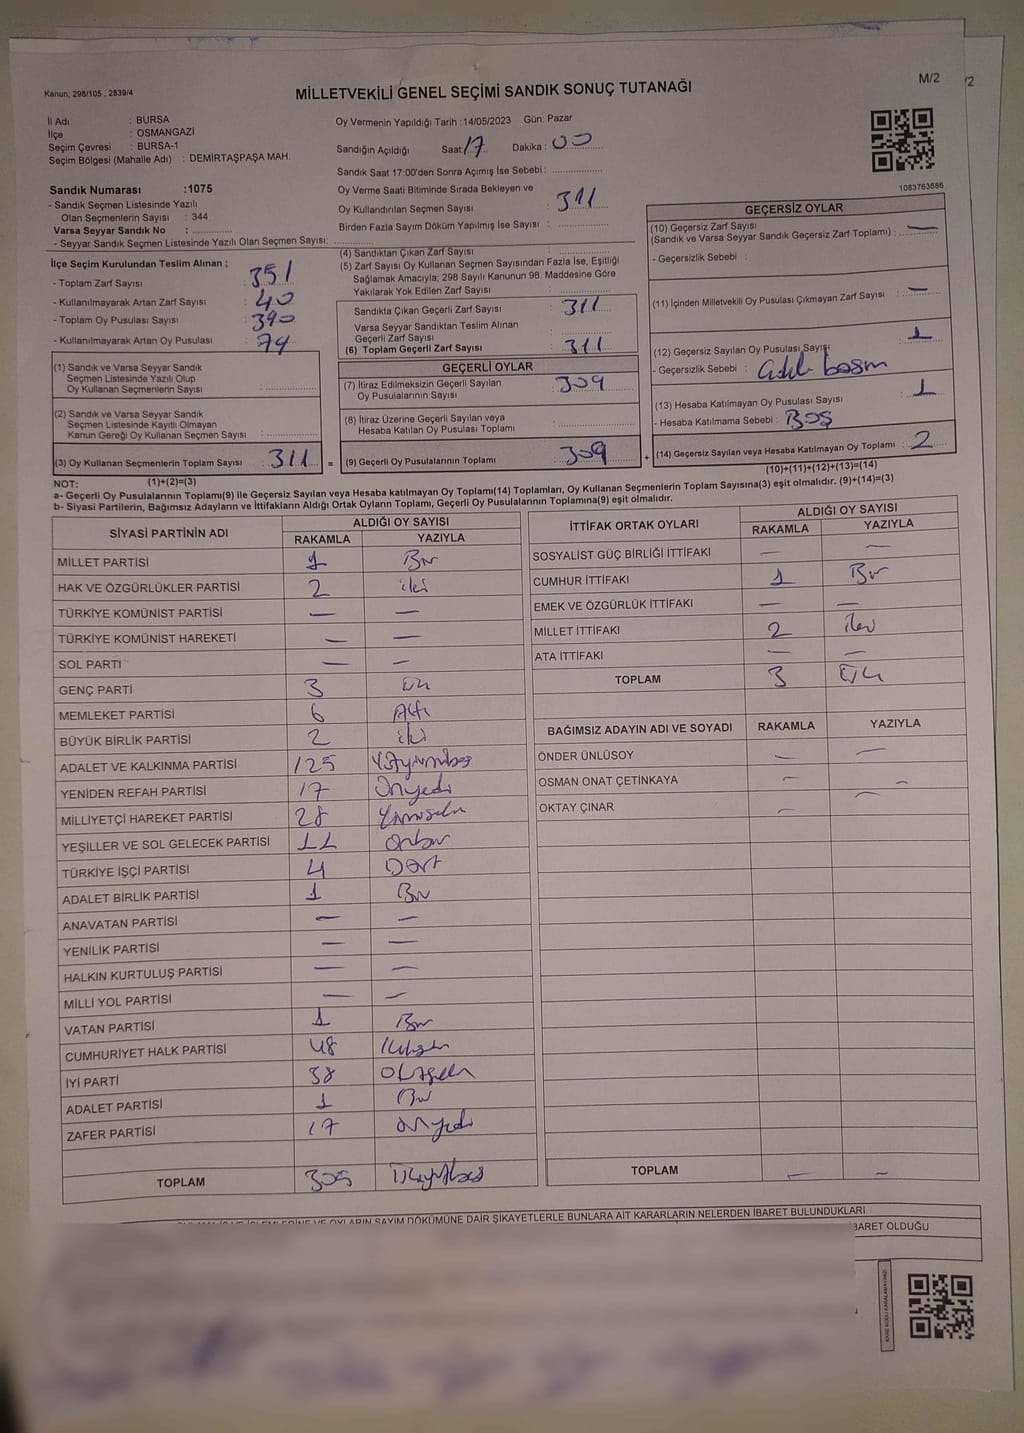 Kanun; 298/105 , 2839/4
MİLLETVEKİLİ GENEL SEÇİMİ SANDIK SONUÇ TUTANAĞI
M/2
/2
İl Adı : BURSA
İlçe : OSMANGAZİ
Seçim Çevresi : BURSA-1
Seçim Bölgesi (Mahalle Adı) : DEMİRTAŞPAŞA MAH.
Oy Vermenin Yapıldığı Tarih :14/05/2023 Gün: Pazar
Sandığın Açıldığı Saat: 17 Dakika: 00
Sandık Saat 17:00'den Sonra Açımış İse Sebebi :
Sandık Numarası :1075
- Sandık Seçmen Listesinde Yazılı
Olan Seçmenlerin Sayısı : 344
Varsa Seyyar Sandık No :
- Seyyar Sandık Seçmen Listesinde Yazılı Olan Seçmen Sayısı:
Oy Verme Saati Bitiminde Sırada Bekleyen ve
Oy Kullandırılan Seçmen Sayısı : 311
Birden Fazla Sayım Döküm Yapılmış İse Sayısı :
1083763686
İlçe Seçim Kurulundan Teslim Alınan ;
- Toplam Zarf Sayısı : 351
- Kullanılmayarak Artan Zarf Sayısı : 40
- Toplam Oy Pusulası Sayısı : 390
- Kullanılmayarak Artan Oy Pusulası : 79
(1) Sandık ve Varsa Seyyar Sandık
Seçmen Listesinde Yazılı Olup
Oy Kullanan Seçmenlerin Sayısı :
(2) Sandık ve Varsa Seyyar Sandık
Seçmen Listesinde Kayıtlı Olmayan
Kanun Gereği Oy Kullanan Seçmen Sayısı :
(3) Oy Kullanan Seçmenlerin Toplam Sayısı : 311 =
(1)+(2)=(3)
(4) Sandıktan Çıkan Zarf Sayısı :
(5) Zarf Sayısı Oy Kullanan Seçmen Sayısından Fazla İse, Eşitliği
Sağlamak Amacıyla; 298 Sayılı Kanunun 98. Maddesine Göre
Yakılarak Yok Edilen Zarf Sayısı :
Sandıkta Çıkan Geçerli Zarf Sayısı : 311
Varsa Seyyar Sandıktan Teslim Alınan
Geçerli Zarf Sayısı :
(6) Toplam Geçerli Zarf Sayısı : 311
GEÇERLİ OYLAR
(7) İtiraz Edilmeksizin Geçerli Sayılan
Oy Pusulalarının Sayısı : 309
(8) İtiraz Üzerine Geçerli Sayılan veya
Hesaba Katılan Oy Pusulası Toplamı :
(9) Geçerli Oy Pusulalarının Toplamı : 309 +
GEÇERSİZ OYLAR
(10) Geçersiz Zarf Sayısı
(Sandık ve Varsa Seyyar Sandık Geçersiz Zarf Toplamı) : —
- Geçersizlik Sebebi :
(11) İçinden Milletvekili Oy Pusulası Çıkmayan Zarf Sayısı : —
(12) Geçersiz Sayılan Oy Pusulası Sayısı : 1
- Geçersizlik Sebebi : basım
(13) Hesaba Katılmayan Oy Pusulası Sayısı : 1
- Hesaba Katılmama Sebebi : Boş
(14) Geçersiz Sayılan veya Hesaba Katılmayan Oy Toplamı : 2
(10)+(11)+(12)+(13)=(14)
NOT:
a- Geçerli Oy Pusulalarının Toplamı(9) ile Geçersiz Sayılan veya Hesaba katılmayan Oy Toplamı(14) Toplamları, Oy Kullanan Seçmenlerin Toplam Sayısına(3) eşit olmalıdır. (9)+(14)=(3)
b- Siyasi Partilerin, Bağımsız Adayların ve İttifakların Aldığı Ortak Oyların Toplamı, Geçerli Oy Pusulalarının Toplamına(9) eşit olmalıdır.
SİYASİ PARTİNİN ADI ALDIĞI OY SAYISI
RAKAMLA YAZIYLA
MİLLET PARTİSİ 1 Bir
HAK VE ÖZGÜRLÜKLER PARTİSİ 2 iki
TÜRKİYE KOMÜNİST PARTİSİ — —
TÜRKİYE KOMÜNİST HAREKETİ — —
SOL PARTİ — —
GENÇ PARTİ 3 Üç
MEMLEKET PARTİSİ 6 Altı
BÜYÜK BİRLİK PARTİSİ 2 iki
ADALET VE KALKINMA PARTİSİ 125 Yüzyirmibeş
YENİDEN REFAH PARTİSİ 17 Onyedi
MİLLİYETÇİ HAREKET PARTİSİ 28 Yirmisekiz
YEŞİLLER VE SOL GELECEK PARTİSİ 11 Onbir
TÜRKİYE İŞÇİ PARTİSİ 4 Dört
ADALET BİRLİK PARTİSİ 1 Bir
ANAVATAN PARTİSİ — —
YENİLİK PARTİSİ — —
HALKIN KURTULUŞ PARTİSİ — —
MİLLİ YOL PARTİSİ — —
VATAN PARTİSİ 1 Bir
CUMHURİYET HALK PARTİSİ 48 Kırksekiz
İYİ PARTİ 38 Otuzsekiz
ADALET PARTİSİ 1 Bir
ZAFER PARTİSİ 17 Onyedi
TOPLAM 305 Üçyüzbeş
İTTİFAK ORTAK OYLARI ALDIĞI OY SAYISI
RAKAMLA YAZIYLA
SOSYALİST GÜÇ BİRLİĞİ İTTİFAKI — —
CUMHUR İTTİFAKI 1 Bir
EMEK VE ÖZGÜRLÜK İTTİFAKI — —
MİLLET İTTİFAKI 2 iki
ATA İTTİFAKI — —
TOPLAM 3 Üç
BAĞIMSIZ ADAYIN ADI VE SOYADI RAKAMLA YAZIYLA
ÖNDER ÜNLÜSOY — —
OSMAN ONAT ÇETİNKAYA — —
OKTAY ÇINAR — —
TOPLAM — —
OYLARIN SAYIM DÖKÜMÜNE DAİR ŞİKAYETLERLE BUNLARA AİT KARARLARIN NELERDEN İBARET BULUNDUKLARI
İBARET OLDUĞU